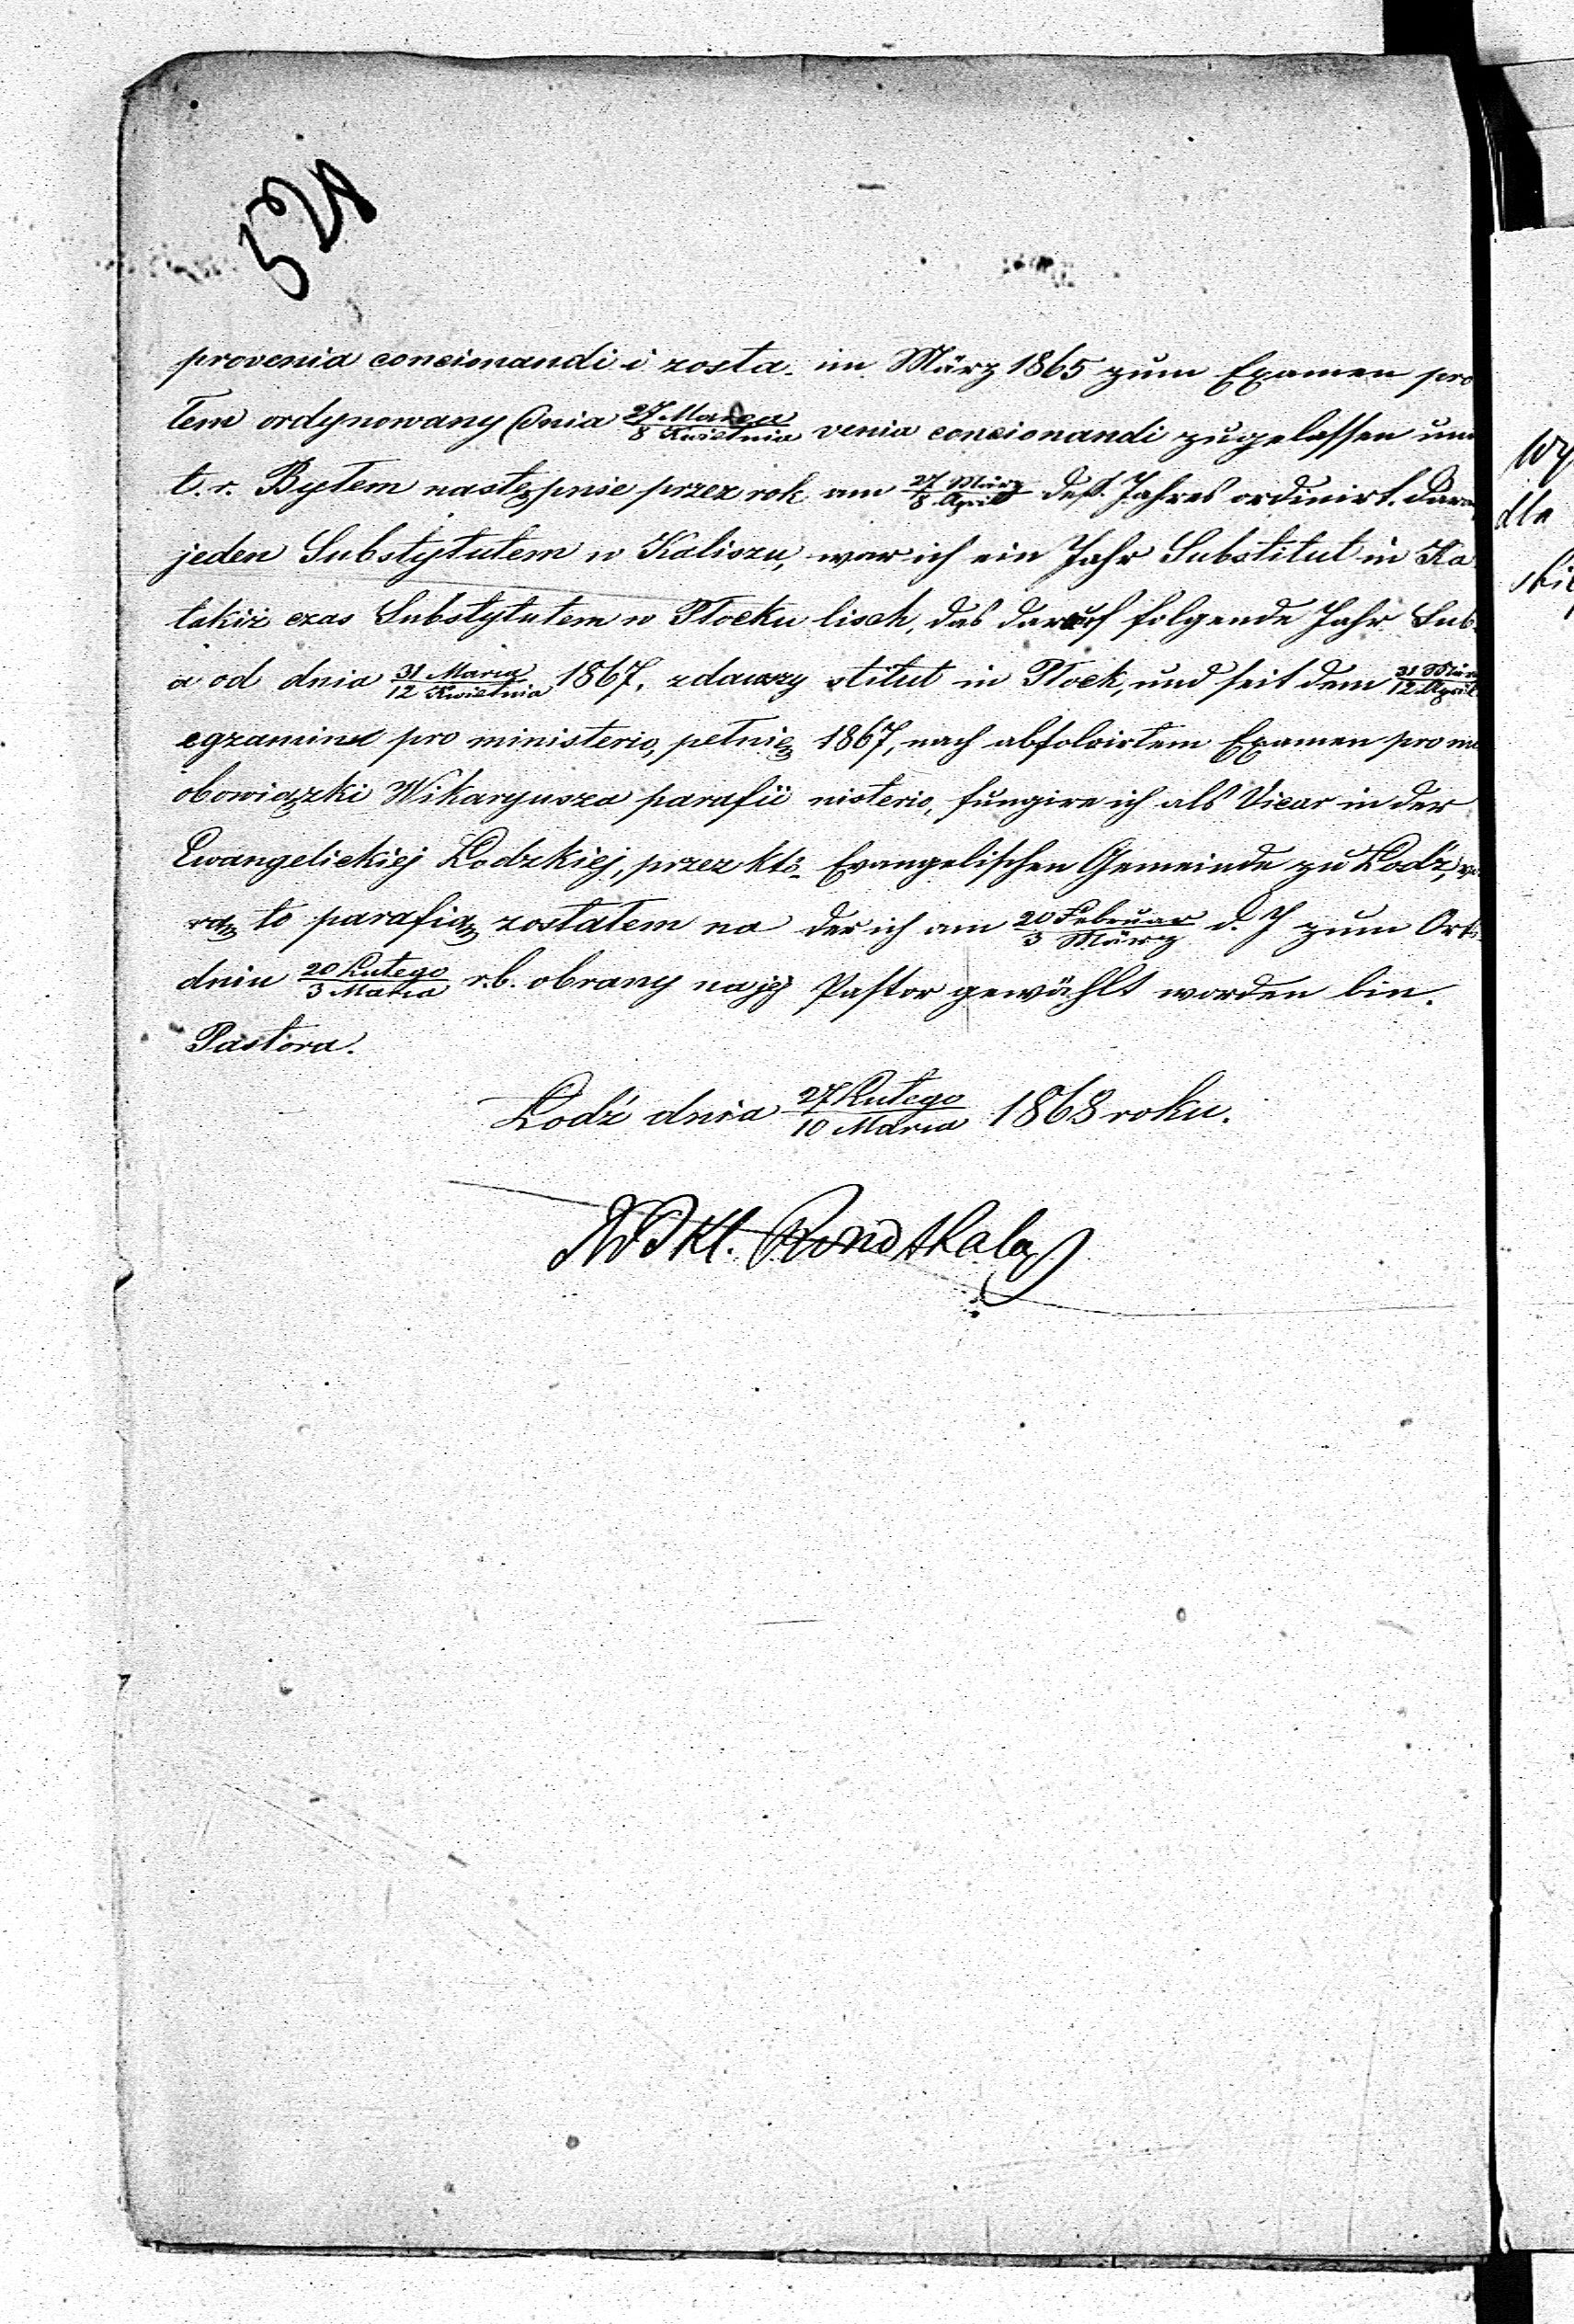 528
pro venia concionandi i zosta-
łem ordynowany dnia 27 Marca / 8 Kwietnia
t. r. Byłem następnie przez rok
jeden Substytutem w Kaliszu,
takiż czas Substytutem w Płocku
a od dnia 31 Marca / 12 Kwietnia 1867, zdawszy
egzamina pro ministerio, pełnię
obowiązki Wikaryusza parafii
Ewangelickiej Łodzkiej, przez któ-
rą to parafią zostałem na
dniu 20 Lutego / 3 Marca r.b. obrany na jej
Pastora.
im März 1865 zum Examen pro
venia concionandi zugelassen und
am 27 März / 8 April dess. Jahres ordinirt. Dara
war ich ein Jahr Substitut in Ka
lisch, das darauf folgende Jahr Sub-
stitut in Płock, und seit dem 31 März / 12 April
1867, nach absolvirtem Examen pro mi
nisterio, fungire ich als Vicar in der
Evangelischen Gemeinde zu Łodź,
der ich am 20 Februar / 3 März d. J zum Orts-
Pastor gewählt worden bin.
Łodź dnia 27 Lutego / 10 Marca 1868 roku.
Kl. Rondthaler
wy
dla
skie